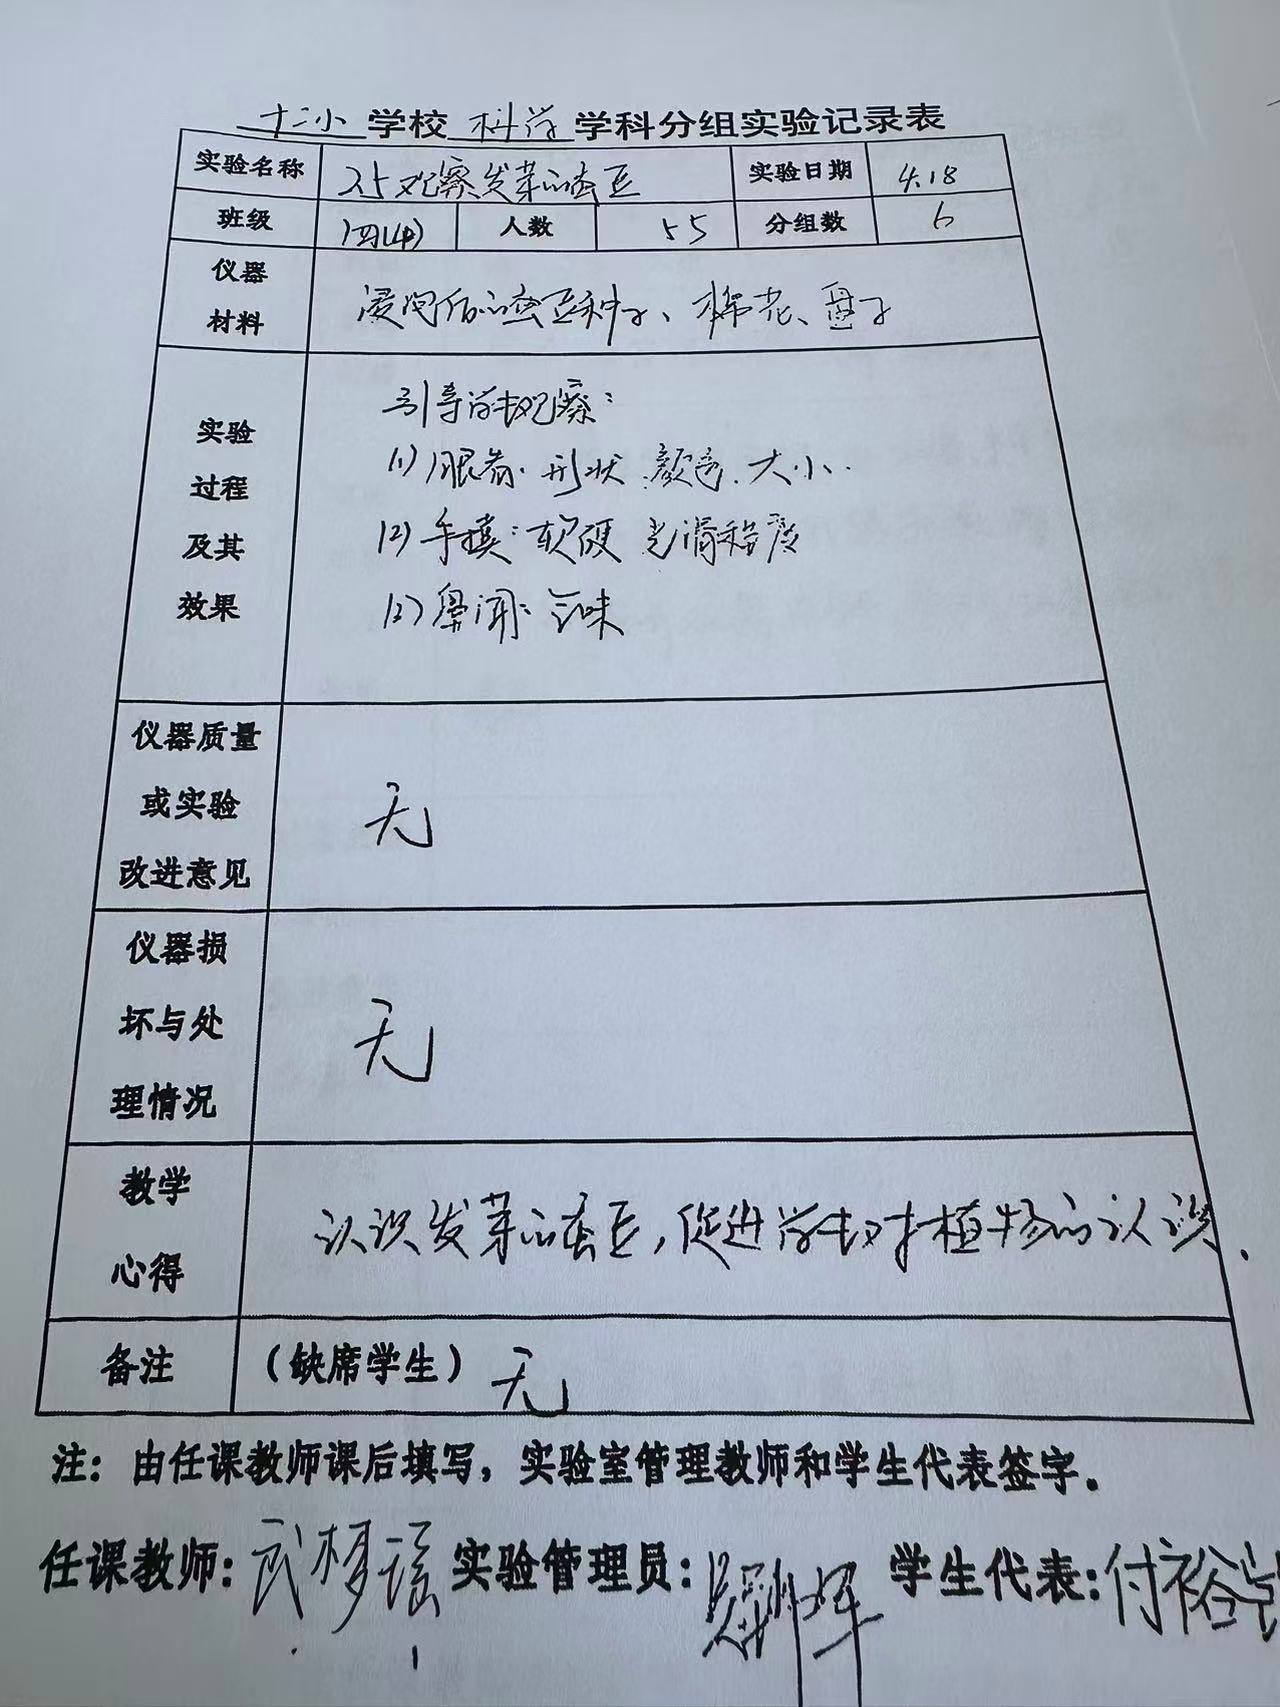 十二小 学校 科学 学科分组实验记录表
实验名称 25观察发芽的蚕豆 实验日期 4.18
班级 四(4) 人数 55 分组数 6
仪器材料 浸泡后的蚕豆种子、棉花、盘子
实验过程及其效果
引导学生观察:
(1)眼看:形状.颜色.大小.
(2)手摸:软硬 光滑程度
(3)鼻闻:气味
仪器质量或实验改进意见 无
仪器损坏与处理情况 无
教学心得 认识发芽的蚕豆,促进学生对植物的认识.
备注 (缺席学生) 无
注:由任课教师课后填写,实验室管理教师和学生代表签字。
任课教师:武梦瑶 实验管理员: 学生代表:付裕